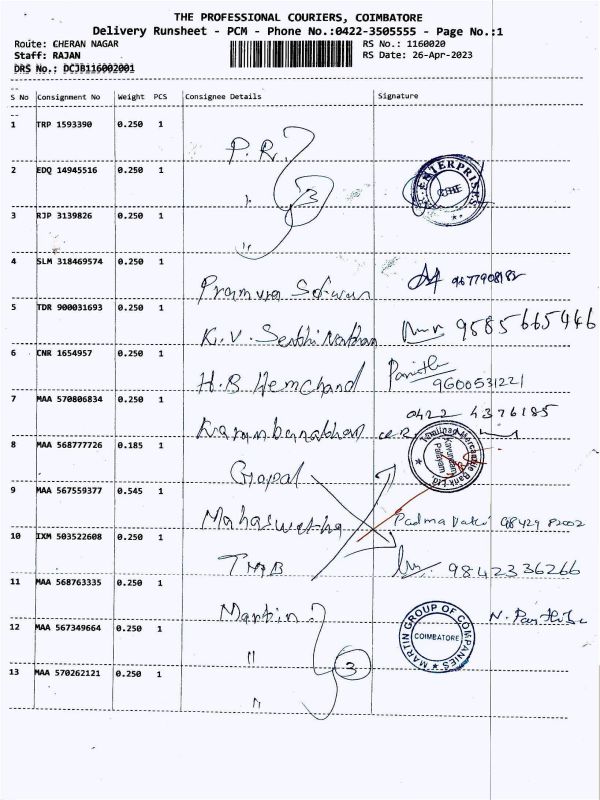 THE PROFESSIONAL COURIERS, COIMBATORE
Delivery Runsheet - PCM - Phone No.:0422-3505555 - Page No.:1
Route: CHERAN NAGAR RS No.: 1160020
Staff: RAJAN RS Date: 26-Apr-2023
DRS No.: DCJB116002001
S No Consignment No Weight PCS Consignee Details Signature
1 TRP 1593390 0.250 1 P.R.
2 EDQ 14945516 0.250 1 " 3 ENTERPRISES
3 RJP 3139826 0.250 1 "
4 SLM 318469574 0.250 1 9677908182
5 TDR 900031693 0.250 1 K.V. Senthil Nathan 9585665446
6 CNR 1654957 0.250 1 H.B Hemchand 9600531221
7 MAA 570806834 0.250 1 0422 4376185
8 MAA 568777726 0.185 1 Gopal Tamilnad Mercantile Bank Ltd.
9 MAA 567559377 0.545 1 Mahaswetha Padmavathi 98429 82002
10 IXM 503522608 0.250 1 TMB 9842336266
11 MAA 568763335 0.250 1 Martin
12 MAA 567349664 0.250 1 " 3 MARTIN GROUP OF COMPANIES COIMBATORE
13 MAA 570262121 0.250 1 "